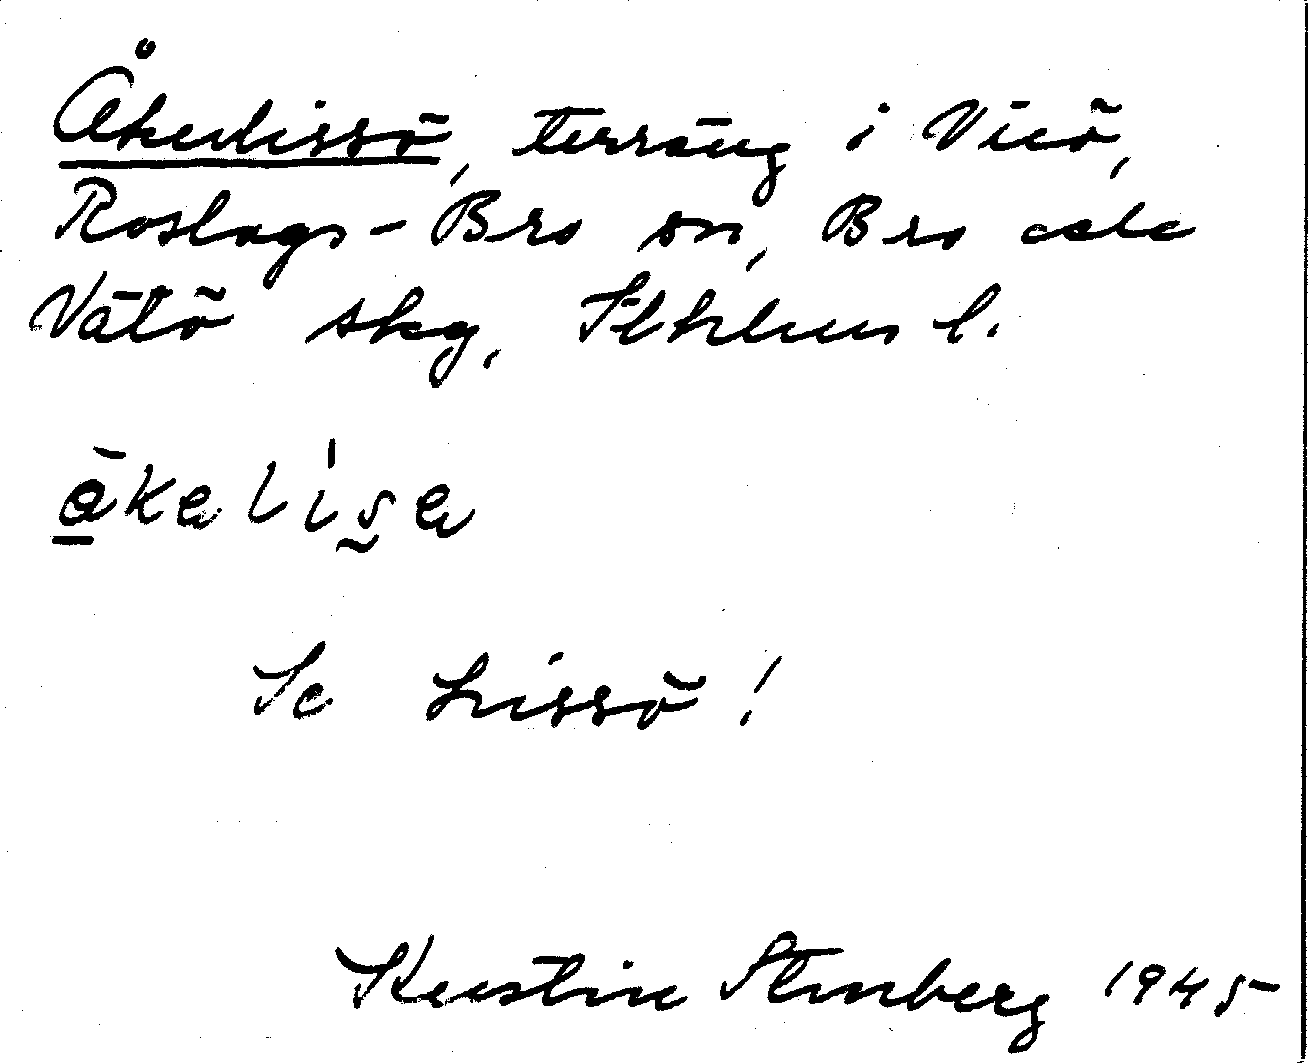 Åkerlissö, terräng i Vicö,
Roslags-Bro sn, Bro och
Vätö skg, Sthlms l.
Se Lissö!
Kerstin Stenberg 1945